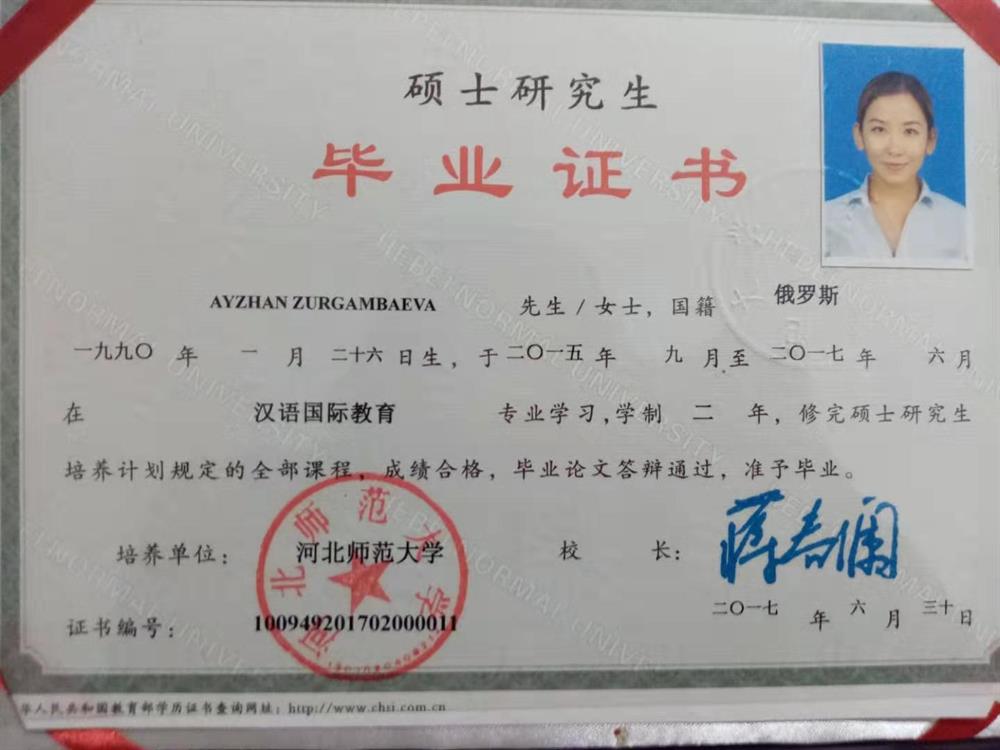 硕士研究生
毕业证书
AYZHAN ZURGAMBAEVA 先生/女士，国籍 俄罗斯
一九九〇 年 一 月 二十六 日生，于 二〇一五 年 九 月至 二〇一七 年 六 月
在 汉语国际教育 专业学习，学制 二 年，修完硕士研究生
培养计划规定的全部课程，成绩合格，毕业论文答辩通过，准予毕业。
培养单位： 河北师范大学 校 长：
河北师范大学
证书编号： 100949201702000011 二〇一七 年 六 月 三十 日
华人民共和国教育部学历证书查询网址：http://www.chsi.com.cn
HEBEI NORMAL UNIVERSITY